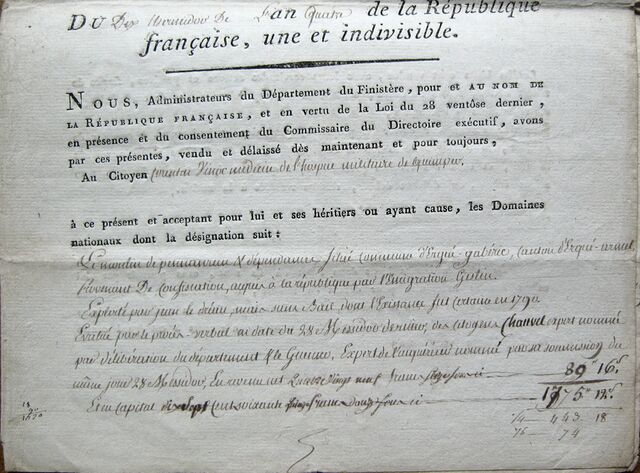 Du Dix thermidor De l'an Quatre de la République
française, une et indivisible.
Nous, Administrateurs du Département du Finistère, pour et au nom de
la République française, et en vertu de la Loi du 28 ventôse dernier,
en présence et du consentement du Commissaire du Directoire exécutif, avons
par ces présentes, vendu et délaissé dès maintenant et pour toujours,
Au Citoyen medecin de l'hospice militaire de quimper.
à ce présent et acceptant pour lui et ses héritiers ou ayant cause, les Domaines
nationaux dont la désignation suit:
Le moulin de pennanreun & dépendances situé commune d'Ergué-gabéric, canton d'Ergué-armel
Provenant De Confiscation, acquis à la république par l'Emigration Geslin.
Exploité par le drenn, mais sans Bail dont l'Existance fut certaine en 1790.
Evalué par le procès verbal au date du 28 Messidor dernier, des citoyens Chauvel expert nommé
par délibération du département & le Guenno, Expert de l'acquéreur nommé par sa soumission du
même jour 28 Messidor, En revenu net Quatre Vingt neuf francs seize sous ci 89 16s
Et en capital dix sept cent soixante quinze francs douze sous ci 1775 12s.
1/4 443 18
74